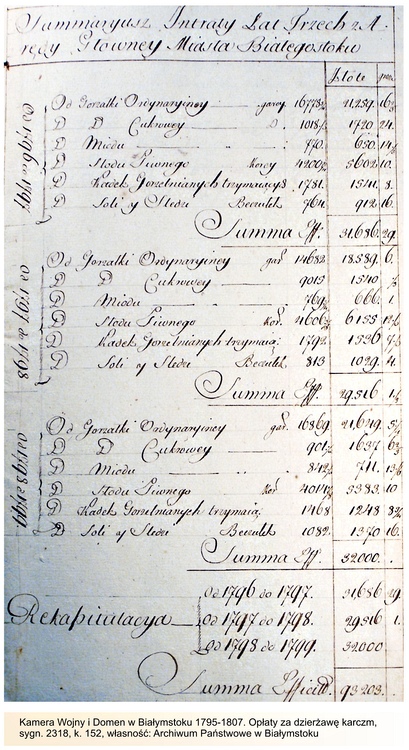 Summaryusz Intraty Lat Trzech z A
rędy Główney Miasta Białegostoku
złote gro
Od Gorzałki Ordynaryiney garcy 16773 21259. 16
D D Cukrowey D. 1018 1720. 24.
D Miodu 770. 650. 14
D Słodu Piwnego Korcy 4200 5602. 10.
D Kadek Gorzelnianych trzymaiących 1781. 1541. 8.
D Soli y Sledzi Beczułek 764. 912. 16.
Summa Eff. 31,686. 29.
w 1797 a 1798
Od Gorzałki Ordynaryiney gar. 14682. 18589. 6.
D D Cukrowey 901 1540.
D Miodu 769 666.
D Słodu Piwnego Kor. 4606 6155
D Kadek Gorzelnianych trzymaią. 1792. 1536
D Soli y Sledzi Beczułek 813 1029. 4.
Summa Eff. 29,516 1.
Od Gorzałki Ordynaryiney gar. 16869. 21,649.
D D Cukrowey 901 1637.
D Miodu 842 711.
D Słodu Piwnego Kor. 4014 5383. 10
D Kadek Gorzelnianych trzymaią. 1468 1248
D Soli y Sledzi Beczułek 1082. 1370 16.
Summa Eff. 32000.
od 1796 do 1797. 31686 29.
Rekapitulacya od 1797 do 1798. 29,516 1.
od 1798 do 1799. 32000
Summa Efficit. 93203.
Kamera Wojny i Domen w Białymstoku 1795-1807. Opłaty za dzierżawę karczm,
sygn. 2318, k. 152, własność: Archiwum Państwowe w Białymstoku